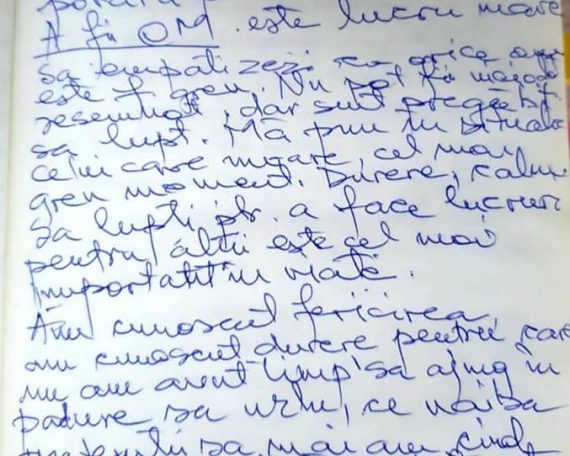 A fi OM este lucru mare
să empatizezi cu orice om
este f. greu. Nu pot fi
resemnat, dar sunt pregătit
să lupt. Mă pun în situația
celui care moare, cel mai
greu moment. Durere, calm
să lupți ptr. a face lucruri
pentru alții este cel mai
important în viață.
Am cunoscut fericirea,
am cunoscut durere pentru care
nu am avut timp să ajung în
pădure să urlu, ce naiba
să mai am, cind